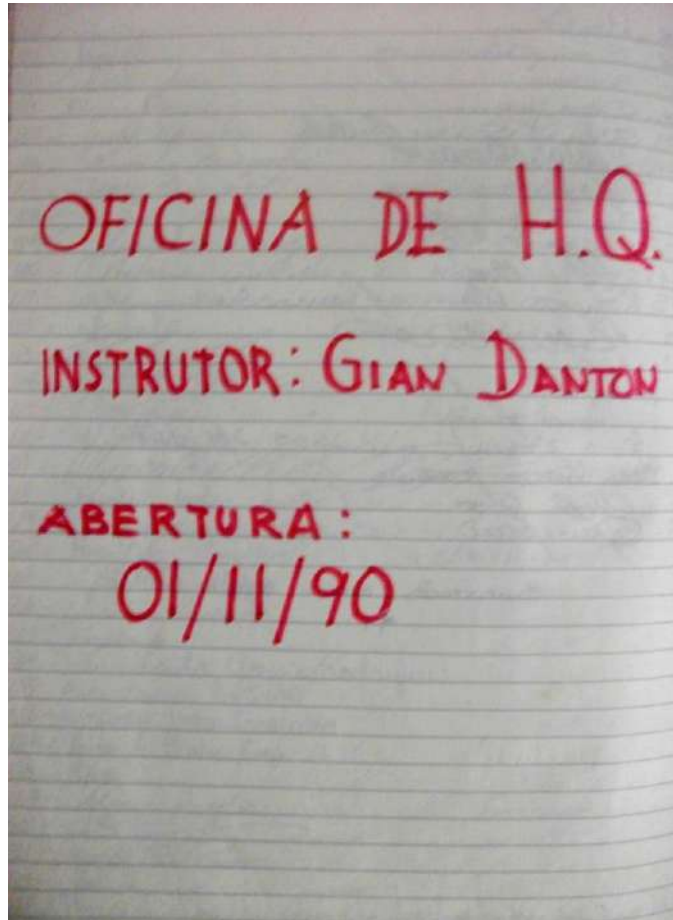 OFICINA DE H.Q.
INSTRUTOR: GIAN DANTON
ABERTURA:
01/11/90